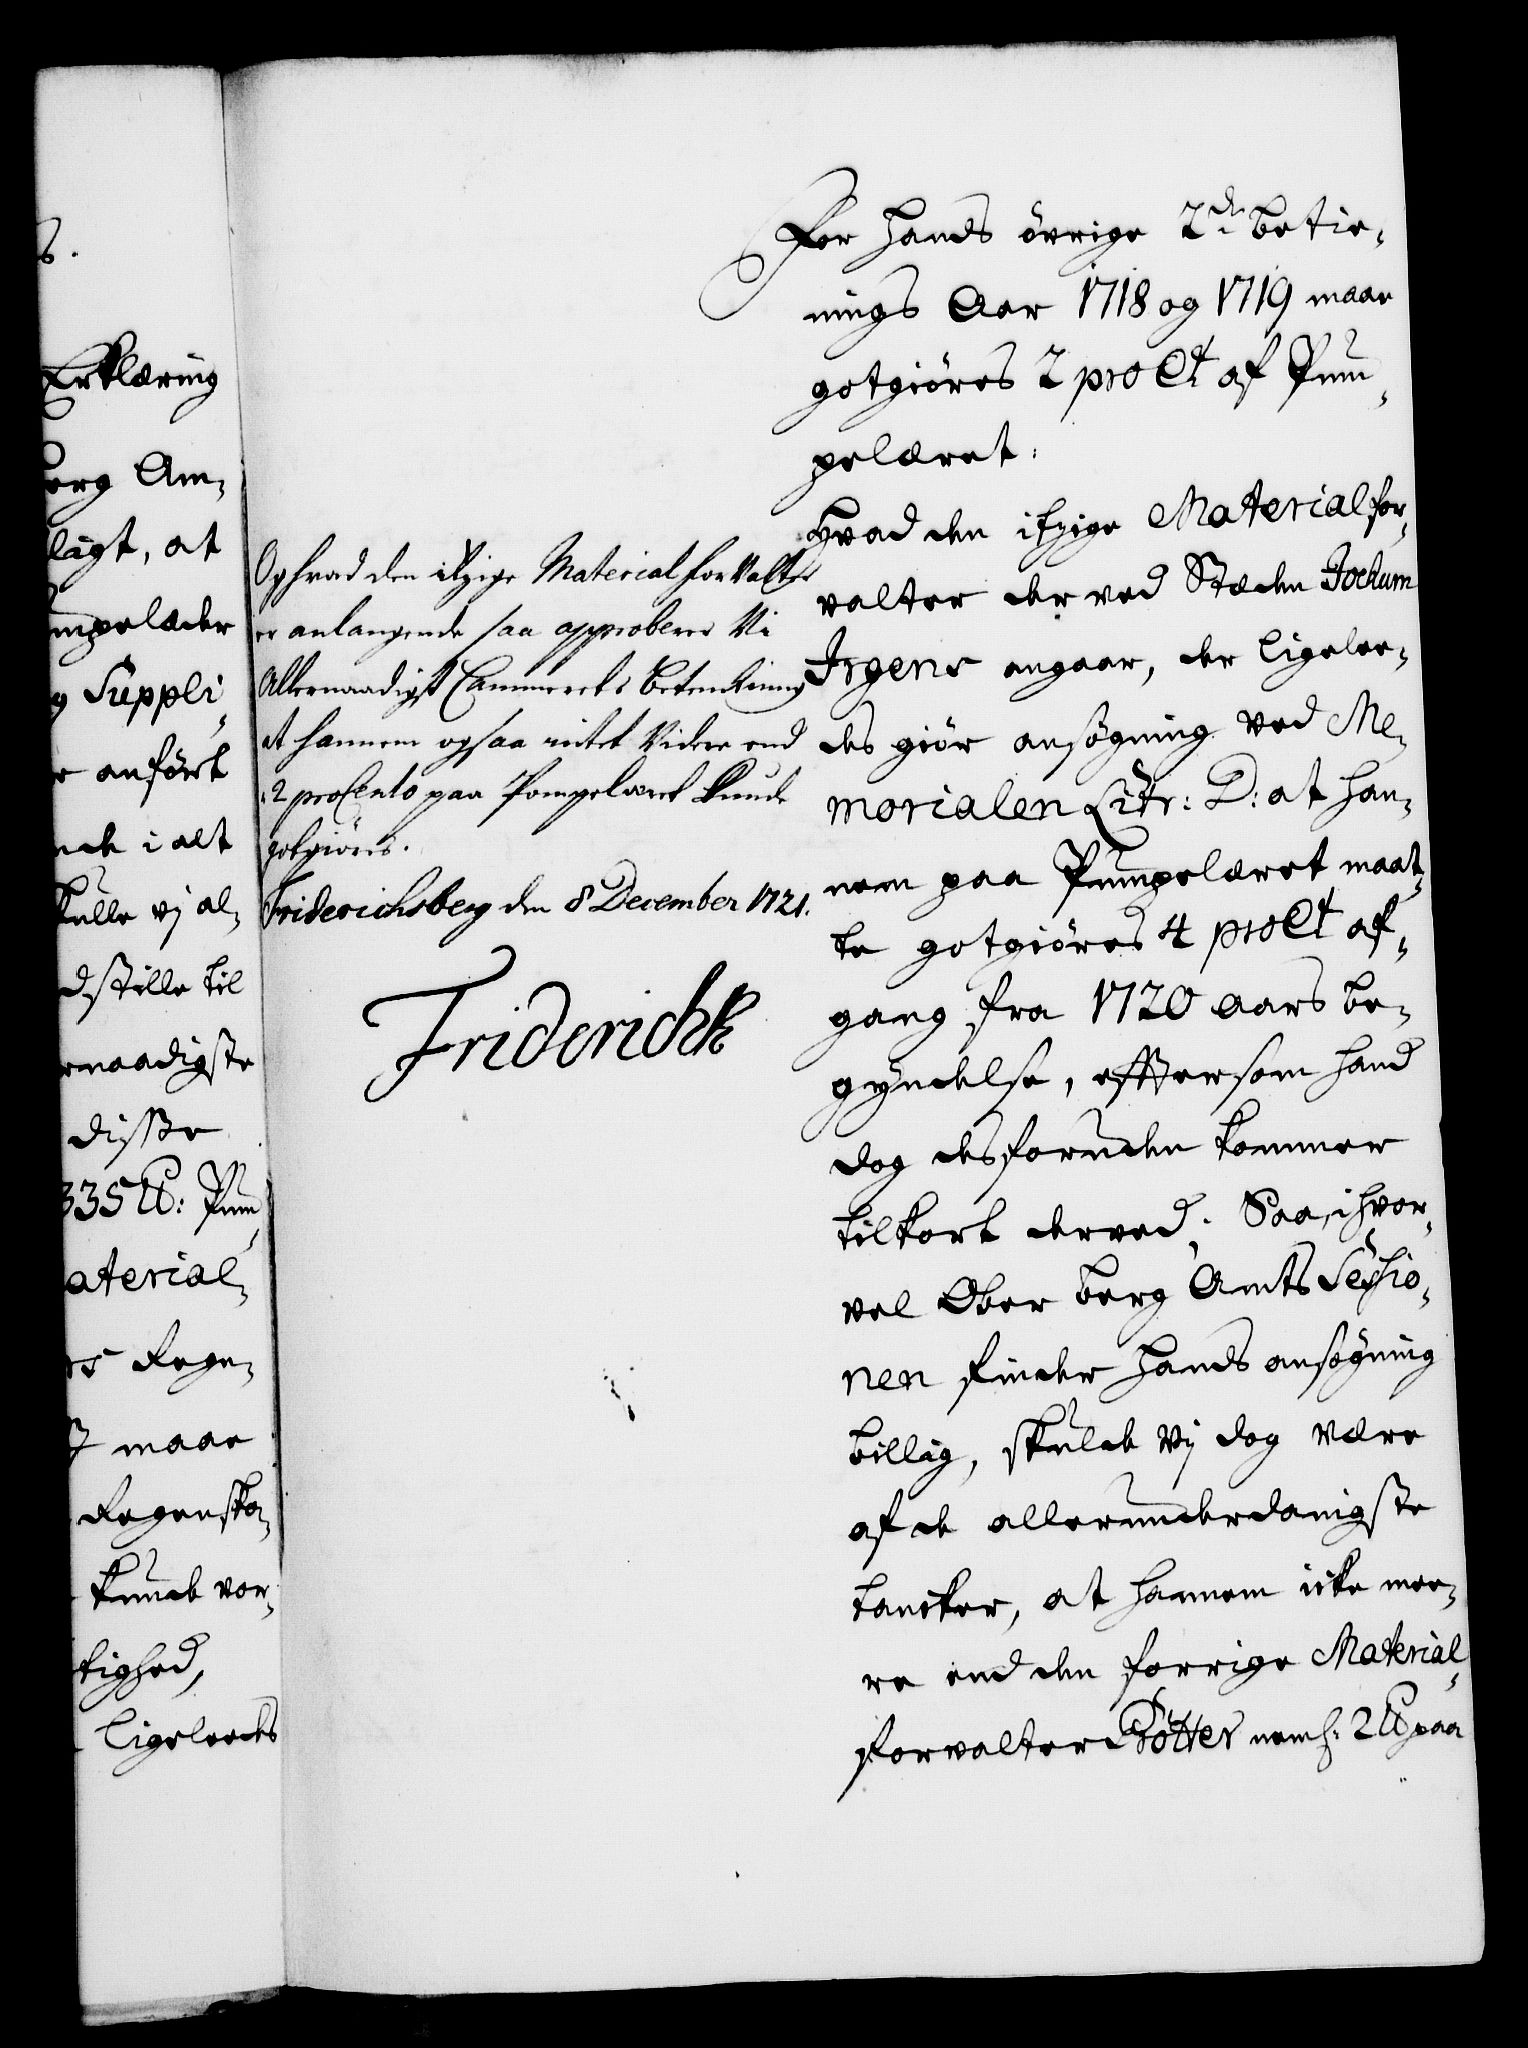 s.
Erklæring
erg Am-
lagt, at
mpelæder
g Suppli-
r anfört
nde i alt
kulle vj al-
dstille til
rnaadigste
disse
335 ℔: Pum-
aterial-
rs Rege-
maae
Regenska-
kunde vor-
tighed,
Ligeleedes
Og hvad den itzige Material forvalter
er anlangende saa approberer Vi
Allernaadigst Cammerets betenckning
at hannem ogsaa intet Videre end
2 proCento paa Pompelæret kunde
gotgiöres.
Friderichsberg den 8 December 1721.
Friderich
For hands övrige 2de betie-
nings Aar 1718 og 1719 maae
gotgiöres 2 pro Ct af Pum-
pelæret.
Hvad den itzige Material for-
valter der ved Stæden Jochum
Irgens angaar, der ligelee-
des giör ansögning ved Me-
morialen Litr: D: at han-
nem paa Pumpelæret maat-
te gotgiöres 4 pro Ct af-
gang fra 1720 aars be-
gyndelse, effter som hand
dog desforuden kommer
tilkort derved. Saa, ihvor-
vel Ober berg Amts Sessio-
nen finder hands ansögning
billig, skulde Vij dog være
af de allerunderdanigste
tancker, at hannem icke mee-
re end den forrige Material-
forvalter Böttes neml: 2 ℔ paa